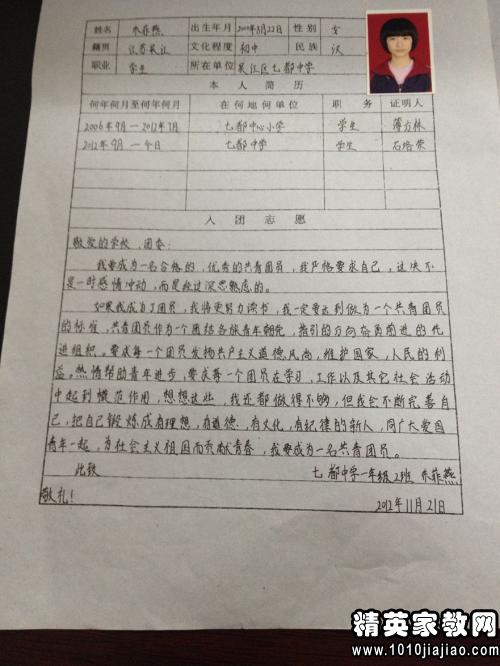 姓名 乔菲燕 出生年月 2000年8月22日 性别 女
籍贯 江苏吴江 文化程度 初中 民族 汉
职业 学生 所在单位 吴江区七都中学
本人简历
何年何月至何年何月 在何地何单位 职务 证明人
2006年9月—2012年7月 七都中心小学 学生 薄方林
2012年9月—今日 七都中学 学生 石培荣
入团志愿
敬爱的学校、团委:
我要成为一名合格的,优秀的共青团员,我严格要求自己,这决不
是一时感情冲动,而是经过深思熟虑的。
如果我成为了团员,我将更努力读书,我一定要达到做为一个共青团员
的标准,共青团员作为一个团结各族青年朝党,指引的方向奋勇前进的先
进组织。要求每一个团员发扬共产主义道德风尚,维护国家,人民的利
益。热情帮助青年进步,要求每一个团员在学习,工作以及其它社会活动
中起到模范作用,想想这些,我还都做得不够,但我会不断完善自
己,把自己锻炼成有理想,有道德,有文化,有纪律的新人,同广大爱国
青年一起,为社会主义祖国而贡献青春,我要成为一名共青团员。
此致 七都中学一年级2班 乔菲燕
敬礼! 2012年11月21日
精英家教网
www.1010jiajiao.com